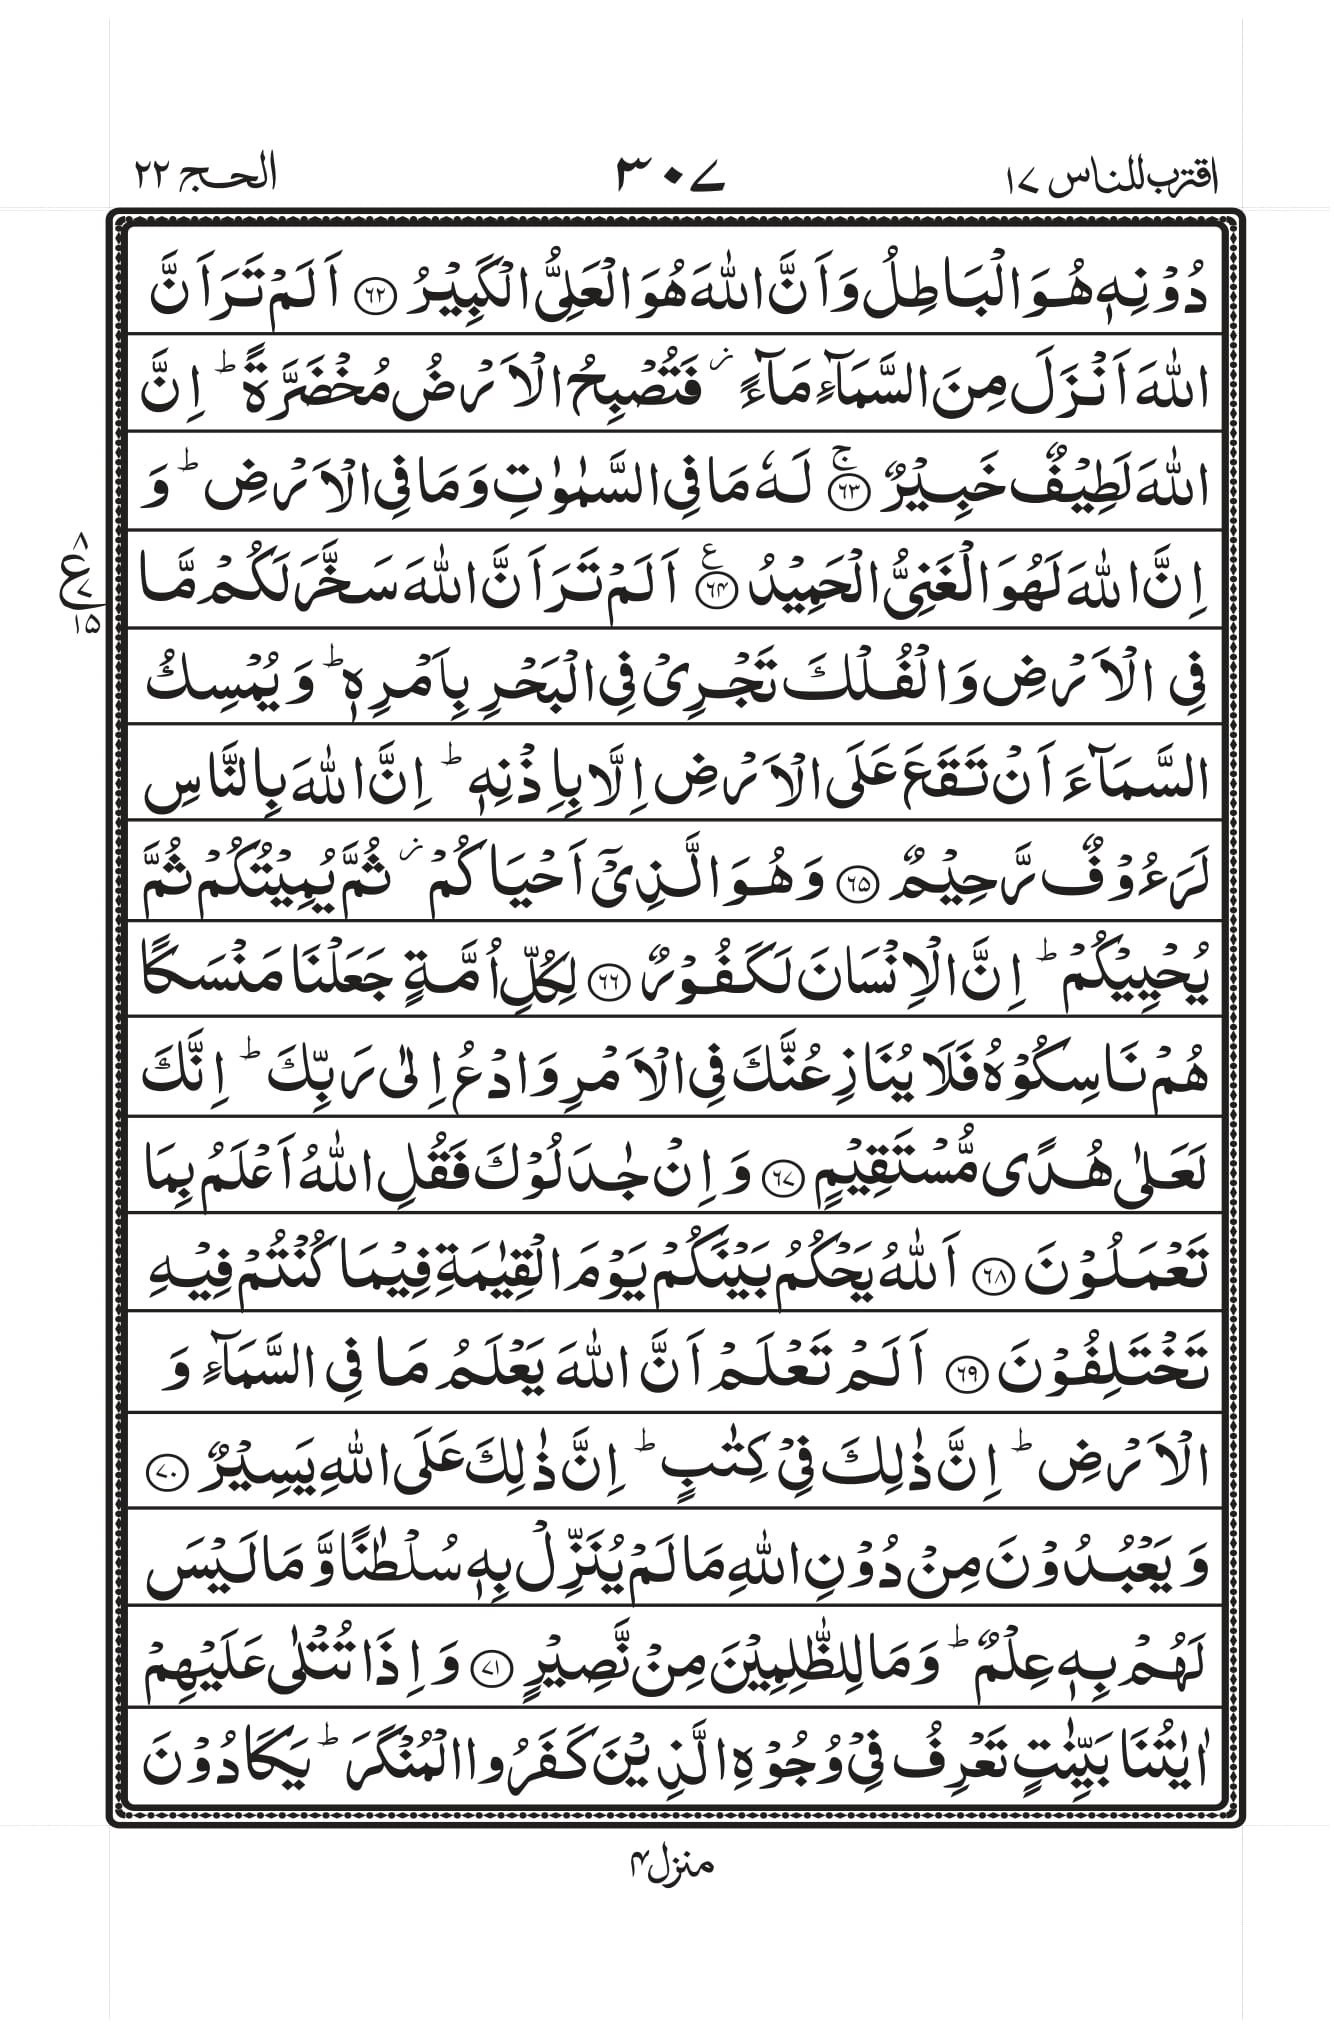 اقترب للناس ١٧
٣٠٧
الحج ٢٢
دُوۡنِهٖ هُوَ الۡبَاطِلُ وَاَنَّ اللّٰهَ هُوَ الۡعَلِىُّ الۡكَبِيۡرُ ﴿۶۲﴾ اَلَمۡ تَرَ اَنَّ
اللّٰهَ اَنۡزَلَ مِنَ السَّمَآءِ مَآءً ز فَتُصۡبِحُ الۡاَرۡضُ مُخۡضَرَّةً ؕ اِنَّ
اللّٰهَ لَطِيۡفٌ خَبِيۡرٌ ۚ ﴿۶۳﴾ لَهٗ مَا فِى السَّمٰوٰتِ وَمَا فِى الۡاَرۡضِ ؕ وَ
اِنَّ اللّٰهَ لَهُوَ الۡغَنِىُّ الۡحَمِيۡدُ ﴿۶۴﴾ ع اَلَمۡ تَرَ اَنَّ اللّٰهَ سَخَّرَ لَكُمۡ مَّا
٨
ع
٧
١۵
فِى الۡاَرۡضِ وَالۡفُلۡكَ تَجۡرِىۡ فِى الۡبَحۡرِ بِاَمۡرِهٖ ؕ وَيُمۡسِكُ
السَّمَآءَ اَنۡ تَقَعَ عَلَى الۡاَرۡضِ اِلَّا بِاِذۡنِهٖ ؕ اِنَّ اللّٰهَ بِالنَّاسِ
لَرَءُوۡفٌ رَّحِيۡمٌ ﴿۶۵﴾ وَهُوَ الَّذِىۡۤ اَحۡيَاكُمۡ ز ثُمَّ يُمِيۡتُكُمۡ ثُمَّ
يُحۡيِيۡكُمۡ ؕ اِنَّ الۡاِنۡسَانَ لَكَفُوۡرٌ ﴿۶۶﴾ لِكُلِّ اُمَّةٍ جَعَلۡنَا مَنۡسَكًا
هُمۡ نَاسِكُوۡهُ فَلَا يُنَازِعُنَّكَ فِى الۡاَمۡرِ وَادۡعُ اِلٰى رَبِّكَ ؕ اِنَّكَ
لَعَلٰى هُدًى مُّسۡتَقِيۡمٍ ﴿۶۷﴾ وَاِنۡ جٰدَلُوۡكَ فَقُلِ اللّٰهُ اَعۡلَمُ بِمَا
تَعۡمَلُوۡنَ ﴿۶۸﴾ اَللّٰهُ يَحۡكُمُ بَيۡنَكُمۡ يَوۡمَ الۡقِيٰمَةِ فِيۡمَا كُنۡتُمۡ فِيۡهِ
تَخۡتَلِفُوۡنَ ﴿۶۹﴾ اَلَمۡ تَعۡلَمۡ اَنَّ اللّٰهَ يَعۡلَمُ مَا فِى السَّمَآءِ وَ
الۡاَرۡضِ ؕ اِنَّ ذٰلِكَ فِىۡ كِتٰبٍ ؕ اِنَّ ذٰلِكَ عَلَى اللّٰهِ يَسِيۡرٌ ﴿۷۰﴾
وَيَعۡبُدُوۡنَ مِنۡ دُوۡنِ اللّٰهِ مَا لَمۡ يُنَزِّلۡ بِهٖ سُلۡطٰنًا وَّمَا لَيۡسَ
لَهُمۡ بِهٖ عِلۡمٌ ؕ وَمَا لِلظّٰلِمِيۡنَ مِنۡ نَّصِيۡرٍ ﴿۷۱﴾ وَاِذَا تُتۡلٰى عَلَيۡهِمۡ
اٰيٰتُنَا بَيِّنٰتٍ تَعۡرِفُ فِىۡ وُجُوۡهِ الَّذِيۡنَ كَفَرُوا الۡمُنۡكَرَ ؕ يَكَادُوۡنَ
منزل ۴